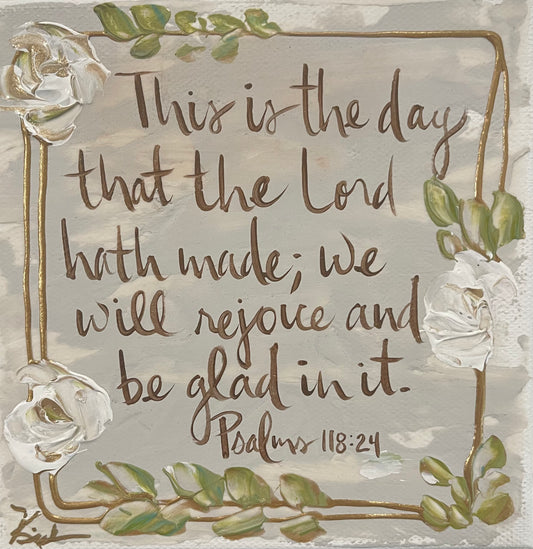 This is the day
that the Lord
hath made; we
will rejoice and
be glad in it.
Psalms 118:24